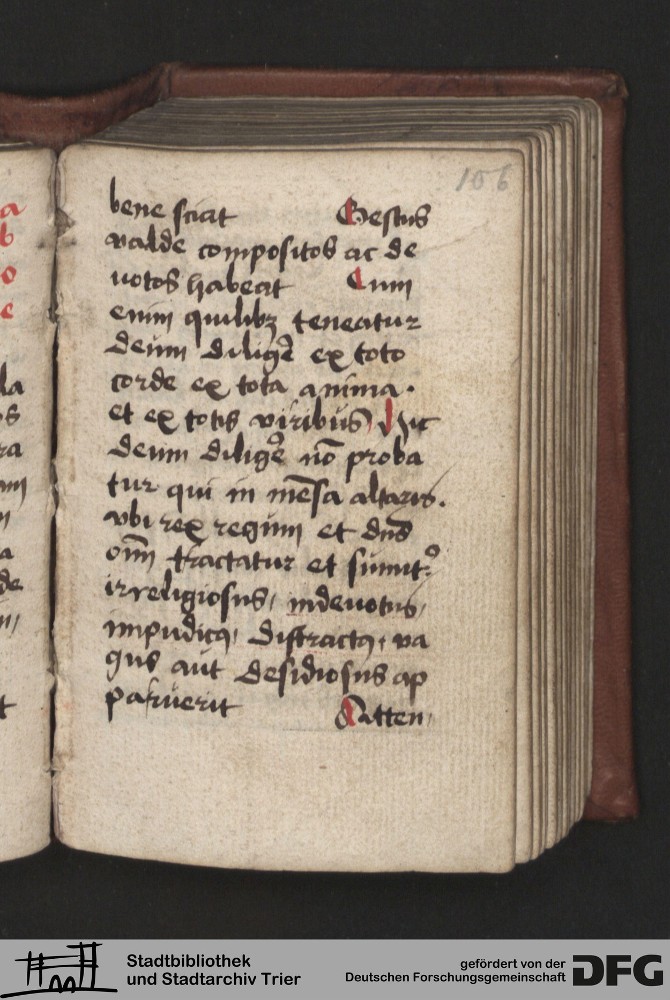 106
bene sciat Gestus
valde compositos ac de
uotos habeat Cum
enim quilibꝫ teneatur
deum diligē ex toto
corde ex tota anima.
et ex totis viribus, Nic
deum diligē̉ nō proba
tur qui in mēsa altaris.
vbi rex regum et dn̄s
oīm tractatur et sumit᷑?
irreligiosus, indeuotus,
impudicꝰ, distractꝰ, va
gus aut desidiosus ap
paruerit Atten,
a
b
o
e
la
os
ra
de
Stadtbibliothek
und Stadtarchiv Trier
gefördert von der
Deutschen Forschungsgemeinschaft
DFG